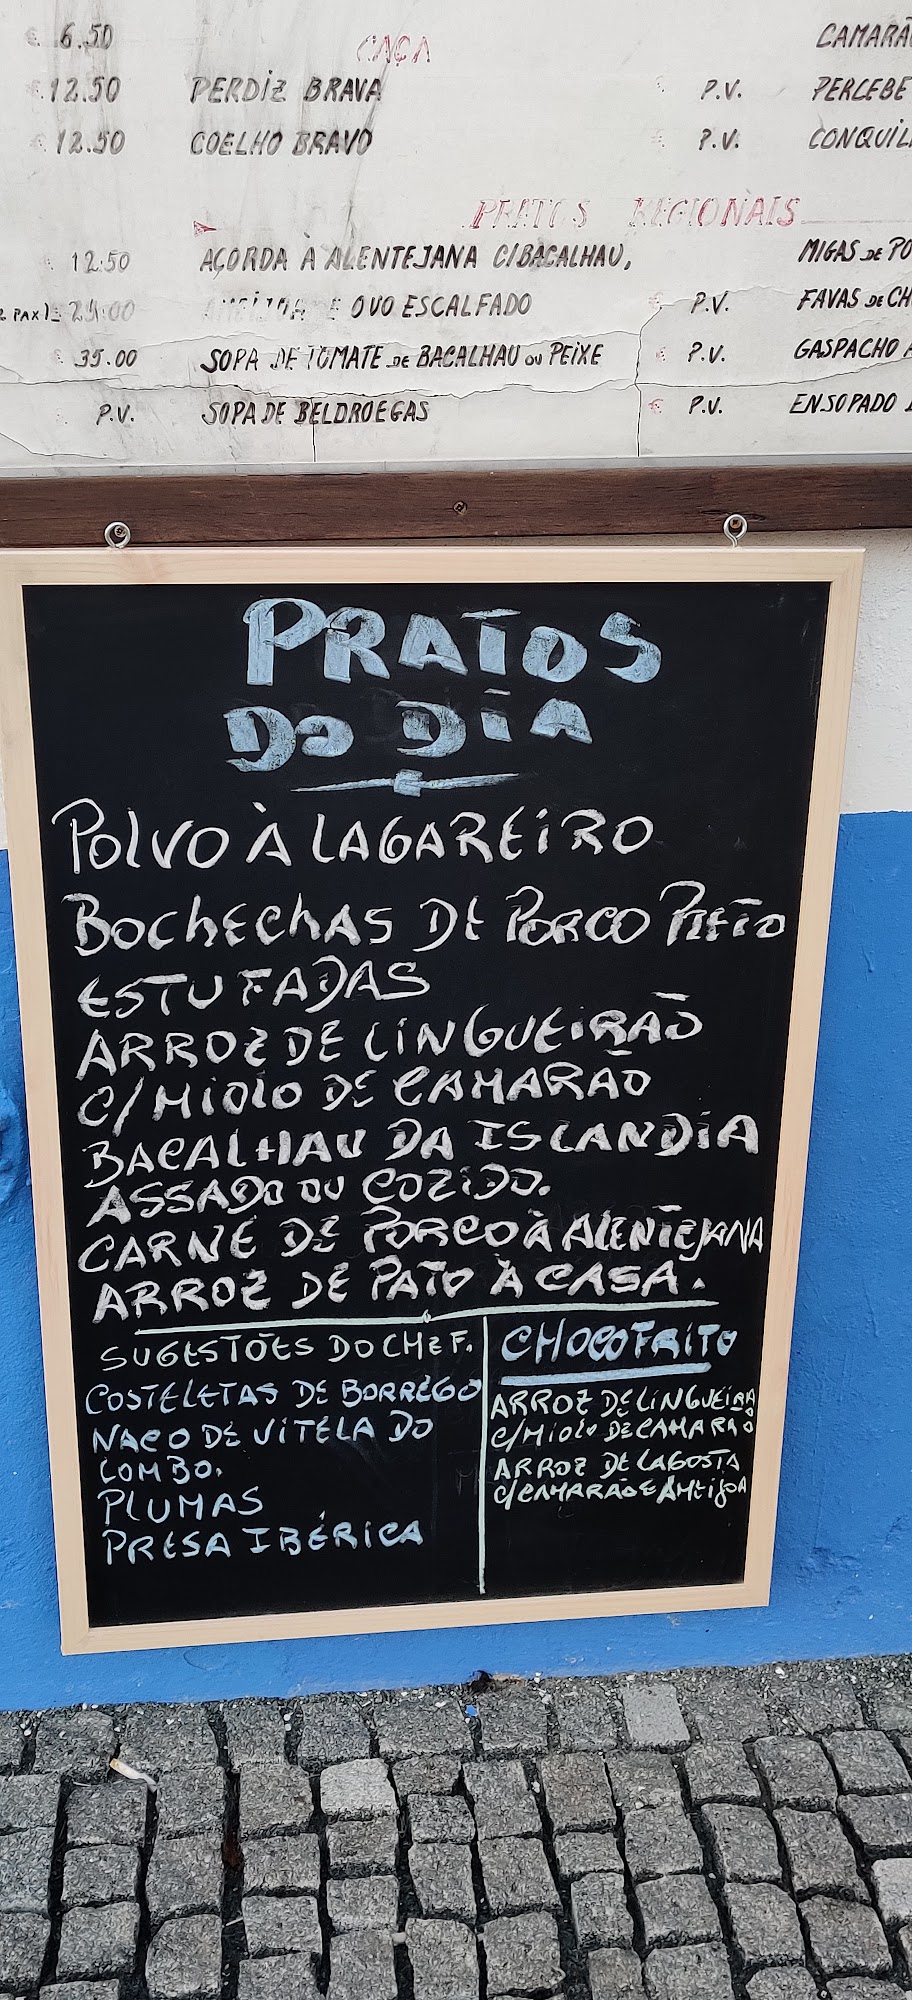 6.50
12.50
12.50
CAÇA
PERDIZ BRAVA
COELHO BRAVO
P.V.
P.V.
CAMARÃ
PERCEBE
CONQUIL
PRATOS REGIONAIS
12.50
AÇORDA À ALENTEJANA C/BACALHAU,
MIGAS DE PO
2 PAX)
AMEIJOA E OVO ESCALFADO
€ P.V.
FAVAS DE CH
€ 35.00
SOPA DE TOMATE DE BACALHAU OU PEIXE
€ P.V.
GASPACHO A
P.V.
SOPA DE BELDROEGAS
€ P.V.
ENSOPADO
PRATOS
DO DIA
POLVO À LAGAREIRO
BOCHECHAS DE PORCO PRETO
ESTUFADAS
ARROZ DE LINGUEIRÃO
C/MIOLO DE CAMARÃO
BACALHAU DA ISLANDIA
ASSADO OU COZIDO.
CARNE DE PORCO À ALENTEJANA
ARROZ DE PATO À CASA.
SUGESTÕES DO CHEF.
COSTELETAS DE BORREGO
NACO DE VITELA DO
LOMBO.
PLUMAS
PRESA IBÉRICA
CHOCO FRITO
ARROZ DE LINGUEIRÃO
C/MIOLO DE CAMARÃO
ARROZ DE LAGOSTA
C/CAMARÃO E AMEIJOA